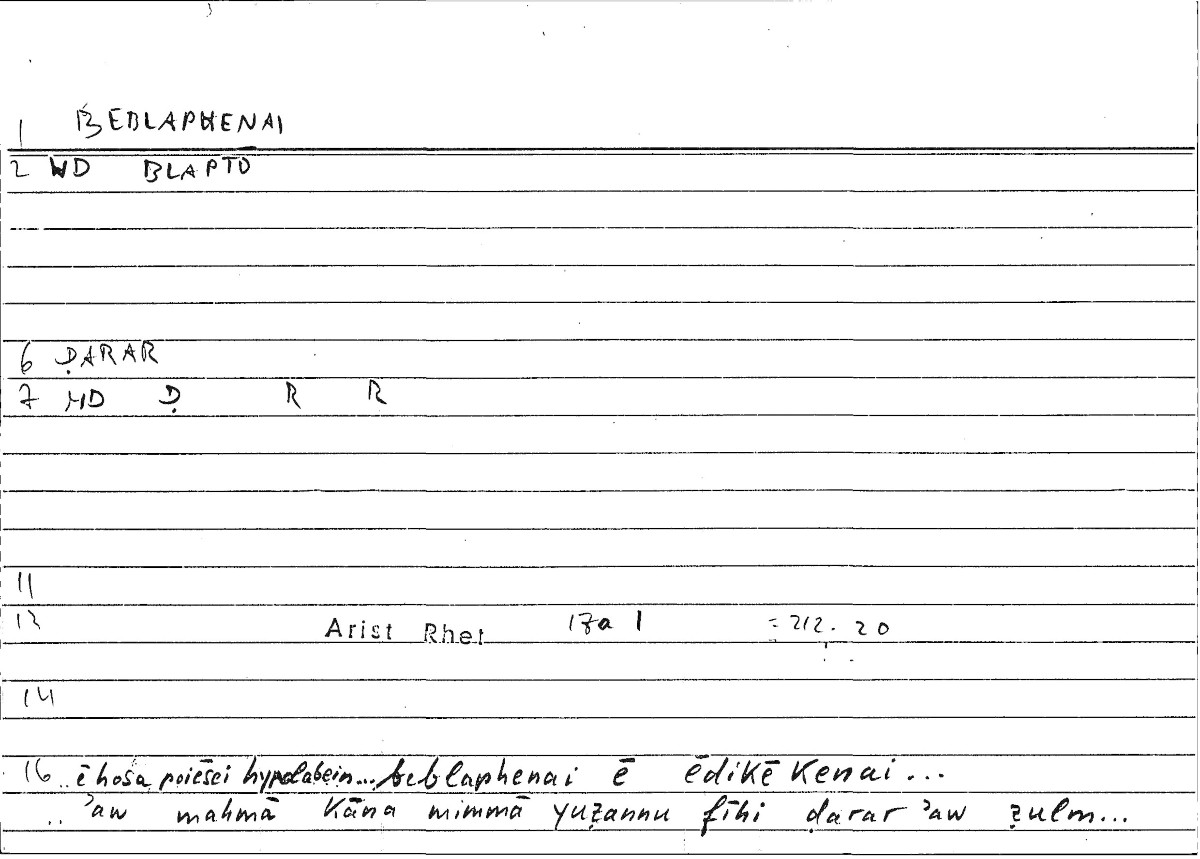 1 BEBLAPHENAI
2 WD BLAPTO
6 ḌARAR
7 MD Ḍ R R
11
13 Arist Rhet 17a 1 = 212. 20
14
16 .. ē hosa poiēsei hypolabein... beblaphenai ē ēdikēkenai...
.. ʾaw mahmā kāna mimmā yuẓannu fīhi ḍarar ʾaw ẓulm...